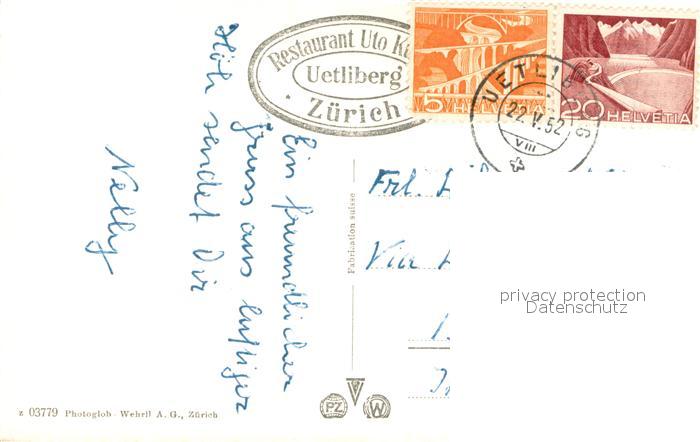 Restaurant Uto K
Uetliberg
Zürich
5 HELVETIA
20 HELVETIA
UETLIB
22.V.52
VIII
Ein freundlicher
Gruss aus luftiger
Höh sendet Dir
Nelly
Frl.
Via
Fabrication suisse
privacy protection
Datenschutz
PZ W
z 03779 Photoglob-Wehrli A. G., Zürich